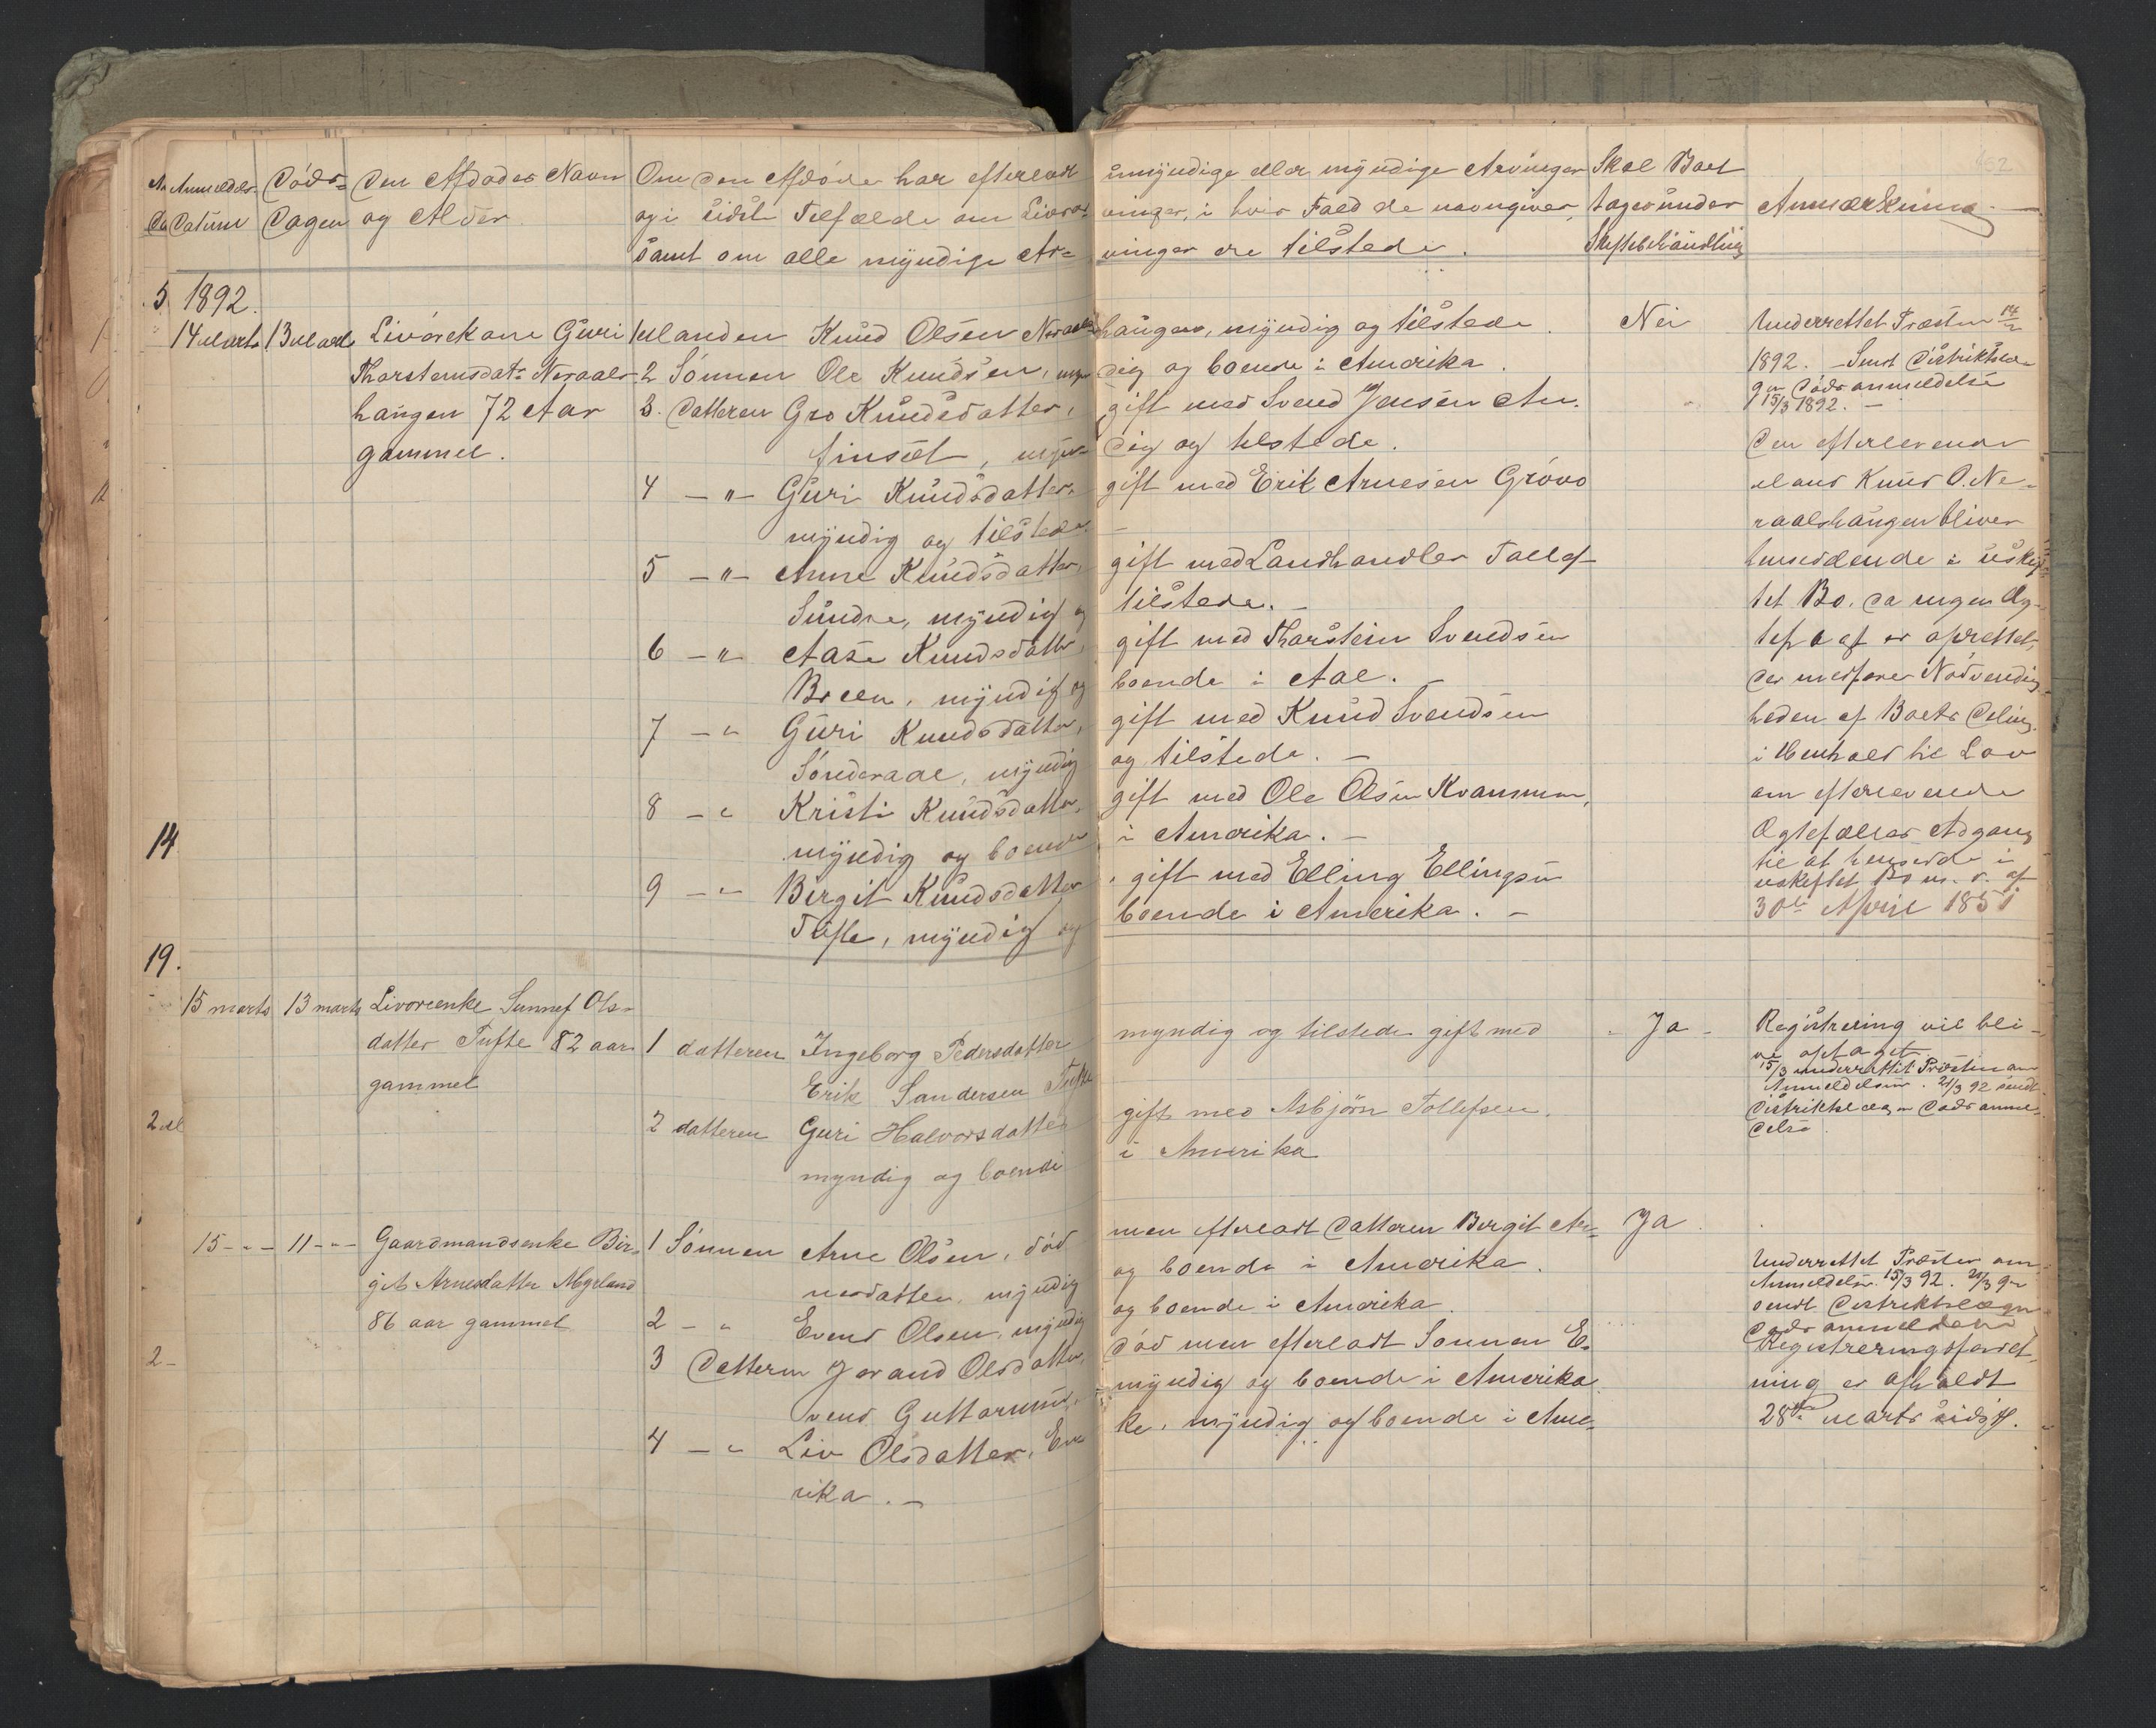 Anmeldel- Døds- Den Afdødes Navn Om den Afdøde har efterladt umyndige eller myndige Arvinger Skal Boet
Datum Dagen og Alder og i sidste Tilfælde om Livsar- vinger, i hvis Fald de navngives, tages under Anmærkning
samt om alle myndige Ar- vinger ere tilstede. Skiftebehandling
5 1892.
14 Marts 13 Marts Livørekone Guri 1 Manden Knud Olsen Neraals- haugen, myndig og tilstede. Nei Underrettet Præsten 14/3
Thorsteinsdat. Neraals- 2 Sønnen Ole Knudsen, myn- dig og boende i Amerika. 1892. Sendt Distriktslæ-
haugen 72 Aar 3. Datteren Gro Knudsdatter, gift med Svend Jensen An. gen Dødsanmeldelse 15/3 1892.
gammel. finset, myn- dig og tilstede. Den efterlevende
4 - " - Guri Knudsdatter, gift med Erik Arnesen Grøvo Mand Knud O. Ne-
myndig og tilstede. raalshaugen bliver
5 - " - Anne Knudsdatter, gift med Landhandler Tollef hensiddende i uskif-
Sundre, myndig og tilstede. tet Bo, da ingen Æg-
6 - " - Aase Knudsdatter, gift med Thorstein Svendsen tepagt er oprettet,
Breen, myndig og boende i Aal. der medfører Nødvendig-
7 - " Guri Knudsdatter, gift med Knud Svendsen heden af Boets Deling
Sønderaal, myndig og tilstede. i Henhold til Lov
8 - " Kristi Knudsdatter, gift med Ole Olsen Kvammen, om efterlevende
14 myndig og boende i Amerika. Ægtefælles Adgang
9 - " Birgit Knudsdatter, gift med Elling Ellingsen til at hensidde i uskiftet Bo m. v. af
Tufte, myndig og boende i Amerika. 30te April 1851
19.
15 marts 13 marts Livøreenke Sunnef Ols-
datter Tufte 82 aar 1 datteren Ingeborg Pedersdatter myndig og tilstede gift med Ja Registrering vil bli-
gammel Erik Sandersen Tufte ve optaget.
15/3 underrettet Præsten om
Anmeldelsen. 21/3 92 sendt
2 datteren Guri Halvorsdatter gift med Asbjørn Tollefsen. Distriktslægen Dødsanmel-
myndig og boende i Amerika delse.
15 - " - 11 - " - Gaardmandsenke Bir- 1 Sønnen Arne Olsen, død men efterladt Datteren Birgit Ar- Ja.
git Arnesdatter Myrland nesdatter, myndig og boende i Amerika. Underrettet Præsten om
86 aar gammel 2 - " Evend Olsen, myndig og boende i Amerika. Anmeldelsen 15/3 92. 21/3 92
sendt Distriktslægen
Dødsanmeldelse
3 Datteren Jorand Olsdatter, død men efterladt Sønnen E- Registreringsforret-
vend Guttormsen, myndig og boende i Amerika. ning er afholdt
4 - " Liv Olsdatter, En- ke, myndig og boende i Ame- 28de Marts sidstl.
rika.